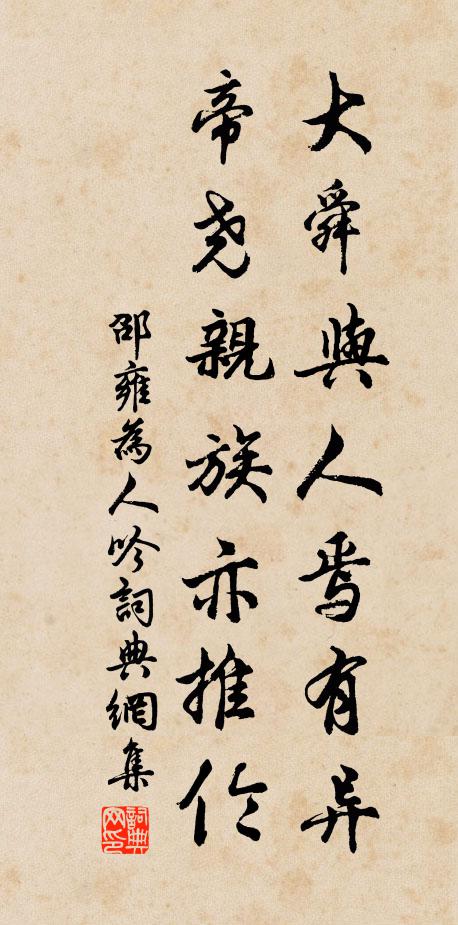 大舜與人焉有异
帝尧親族亦推伦
邵雍為人吟詞典網集
詞典网印